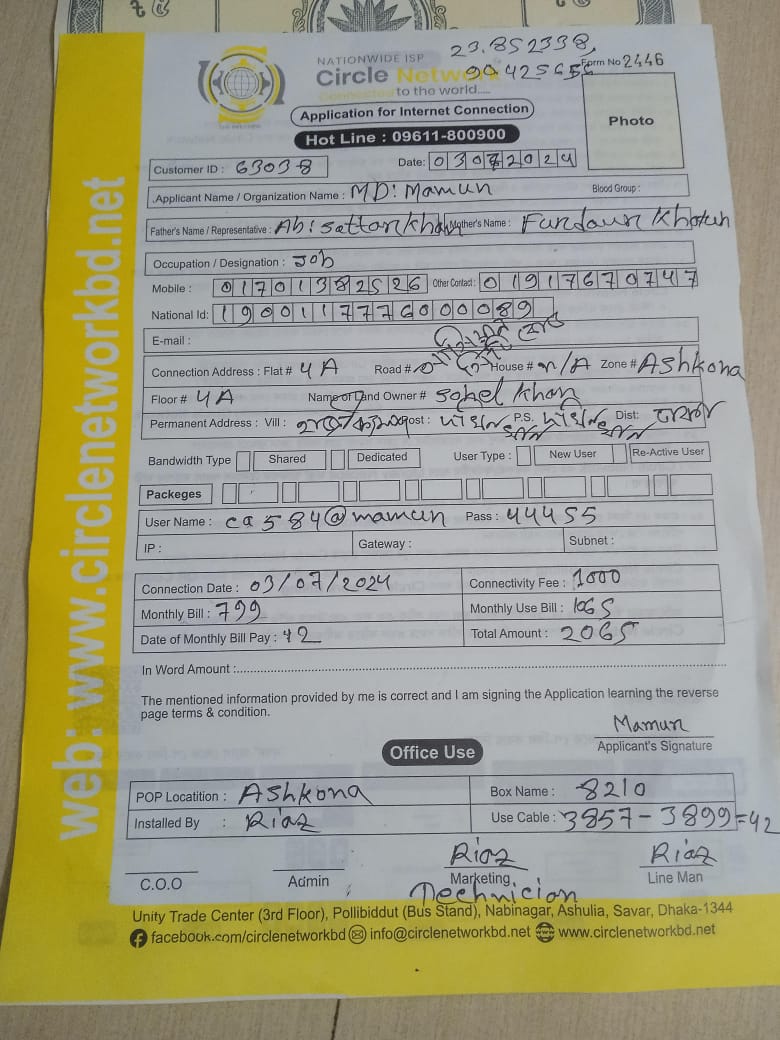 NATIONWIDE ISP
Circle Network
Connected to the world....
23.852338,
90.425656
Form No 2446
Application for Internet Connection
Hot Line : 09611-800900
Photo
Customer ID : 63038
Date: 03072024
Applicant Name / Organization Name : MD: Mamun Blood Group :
Father's Name / Representative : Ab: Sattar khan Mother's Name : Khatun
Occupation / Designation : Job
Mobile : 01701382526 Other Contact : 01917670747
National Id: 1900117776000089
E-mail :
Connection Address : Flat # 4A Road # House # n/A Zone # Ashkona
Floor # 4A Name of Land Owner # Sohel Khan
Permanent Address : Vill : Post : P.S. Dist:
Bandwidth Type Shared Dedicated User Type : New User Re-Active User
Packeges
User Name : ca584@mamun Pass : 44455
IP : Gateway : Subnet :
Connection Date : 03/07/2024 Connectivity Fee : 1000
Monthly Bill : 799 Monthly Use Bill : 1065
Date of Monthly Bill Pay : 12 Total Amount : 2065
In Word Amount :
The mentioned information provided by me is correct and I am signing the Application learning the reverse
page terms & condition.
Mamun
Applicant's Signature
Office Use
POP Locatition : Ashkona Box Name : 8210
Installed By : Riaz Use Cable : 3857-3899=42
Riaz Riaz
C.O.O Admin Marketing Line Man
Technician
Unity Trade Center (3rd Floor), Pollibiddut (Bus Stand), Nabinagar, Ashulia, Savar, Dhaka-1344
facebook.com/circlenetworkbd info@circlenetworkbd.net www.circlenetworkbd.net
web: www.circlenetworkbd.net